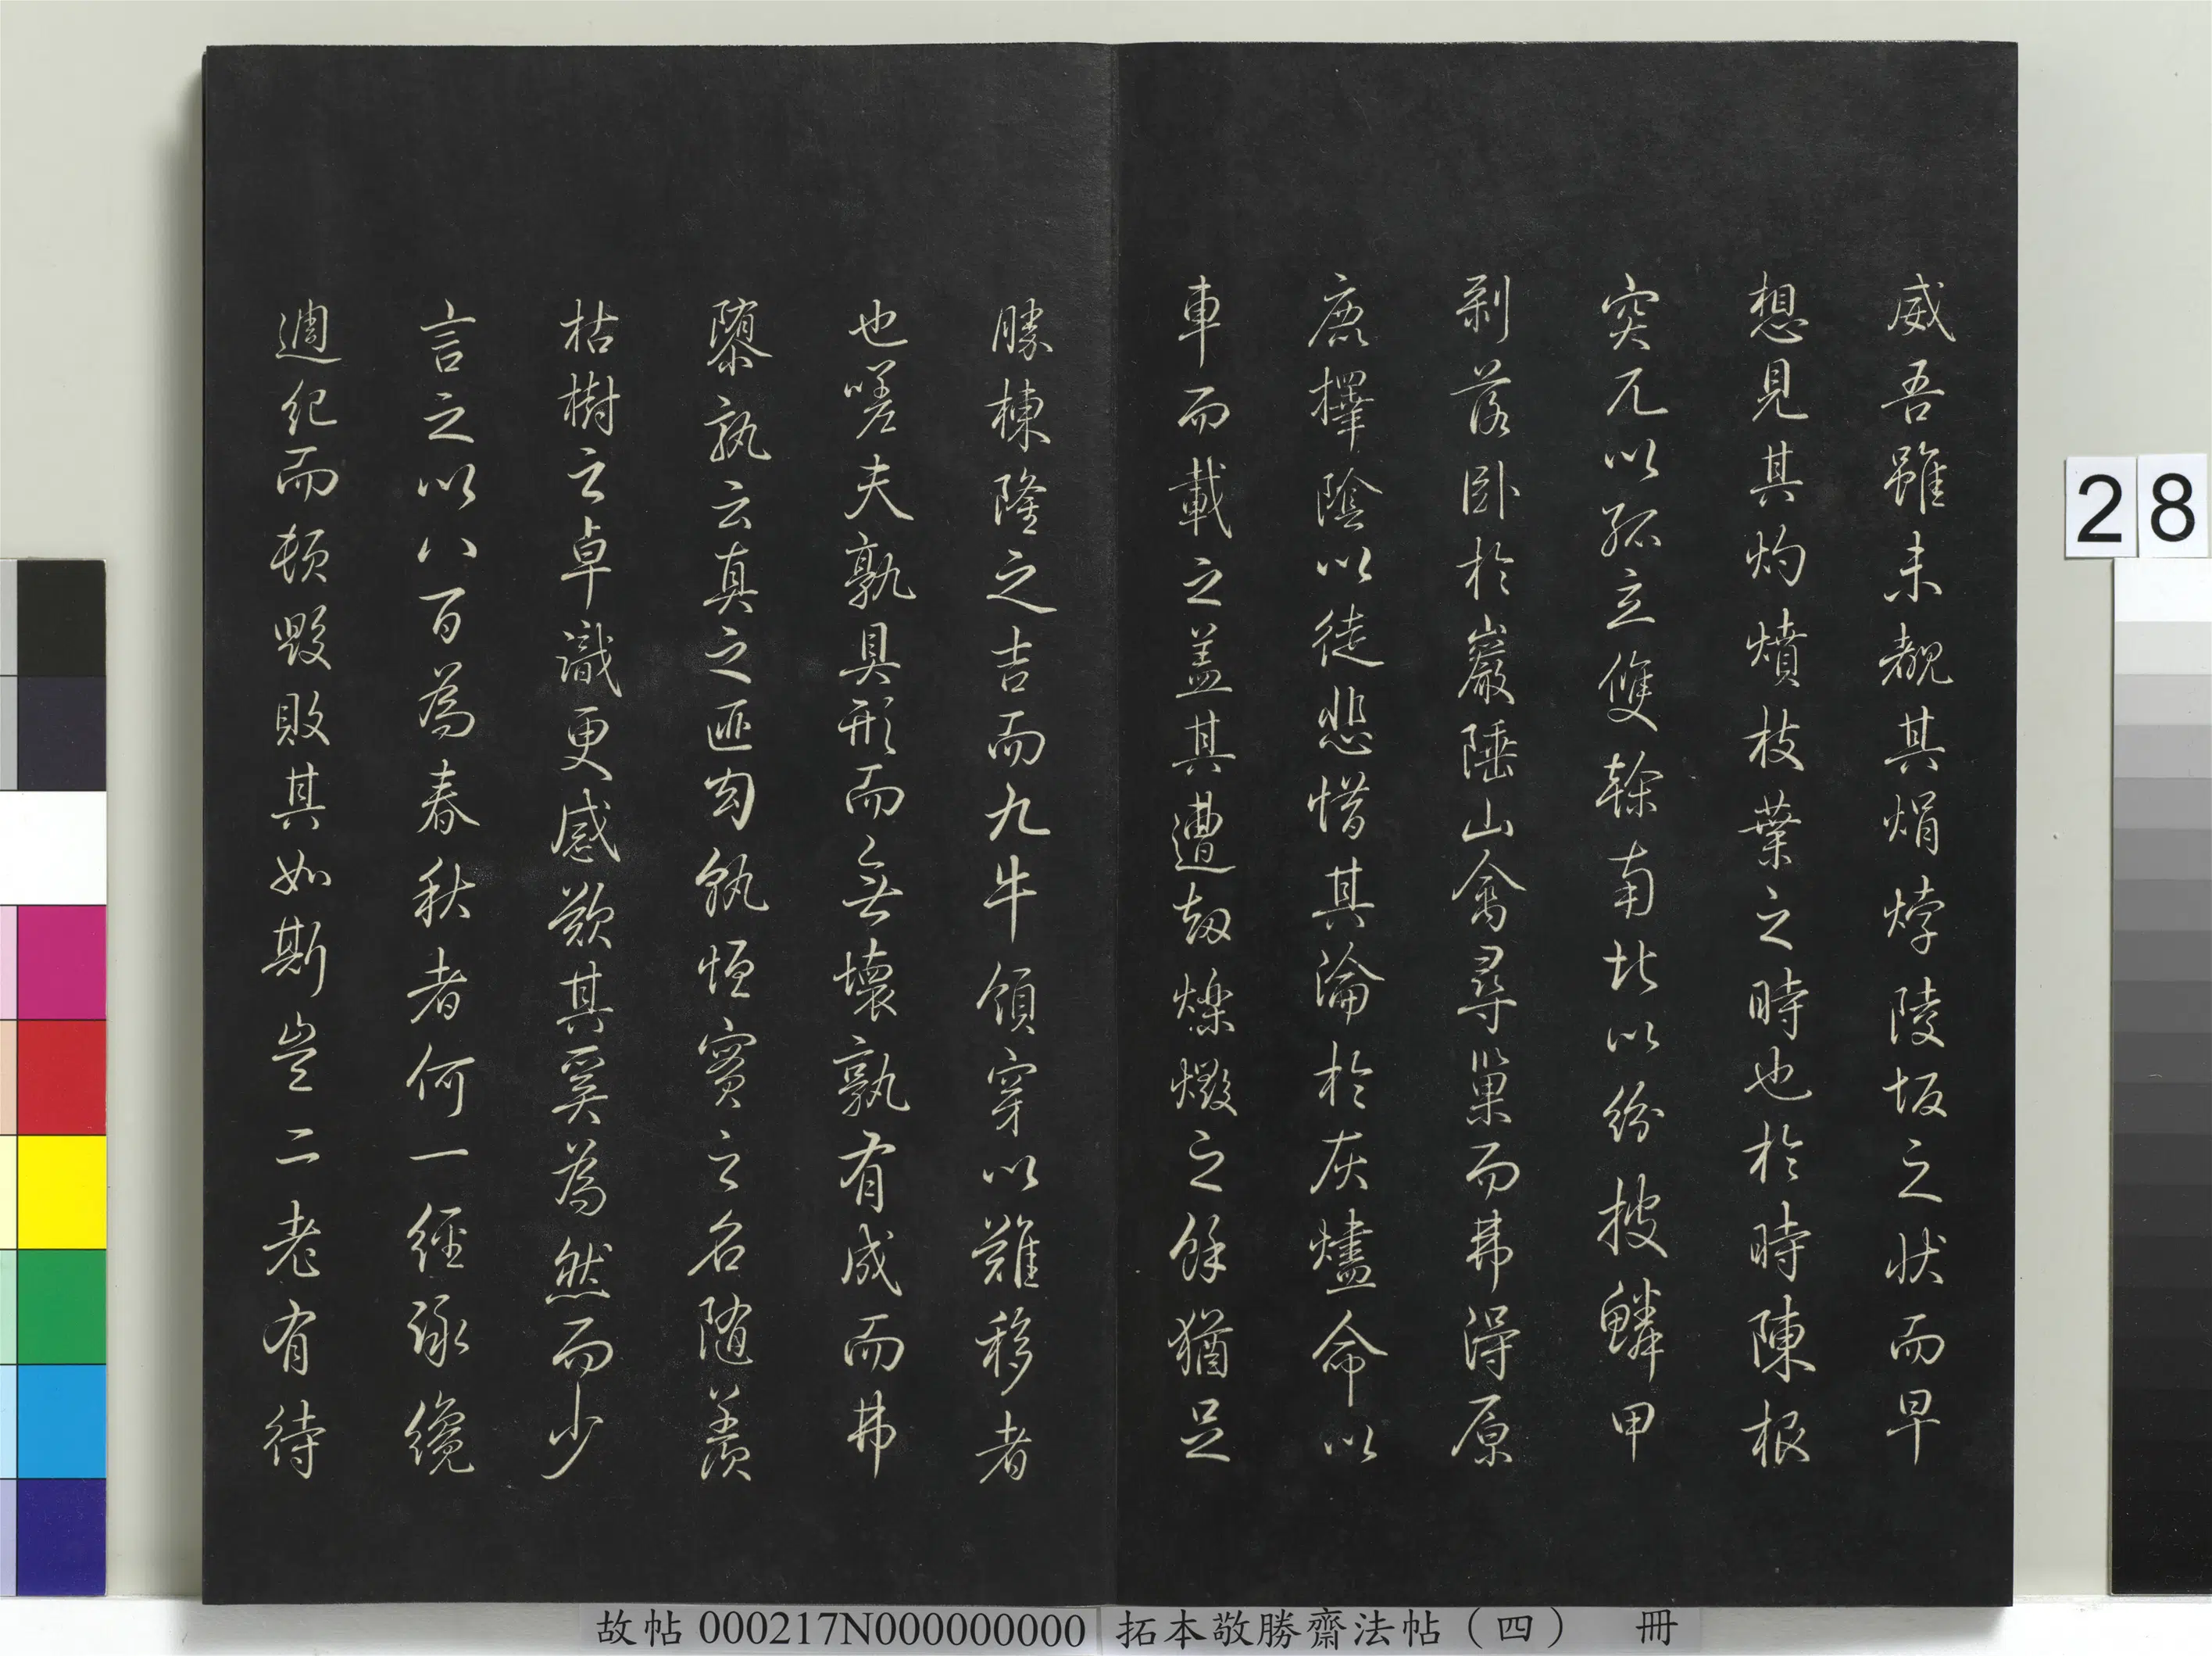 威吾雖未覩其焆㶿陵坂之状而早
想見其灼燌枝葉之時也於時陳根
突兀以孤立雙榦南北以紛披鱗甲
剥落卧於巖陲山禽尋巢而弗得原
鹿擇陰以徒悲惜其淪於灰燼命以
車而載之盖其遭劫爍燬之餘猶足
勝棟隆之吉而九牛領穿以難移者
也嗟夫孰具形而無壞孰有成而弗
隳孰云真之匪匄孰恒賓之名隨羨
枯樹之卓識更感歎其奚為然而少
言之以八百為春秋者何一經承纔
週紀而頓毀敗其如斯豈二老有待
28
故帖000217N000000000 拓本敬勝齋法帖（四） 冊